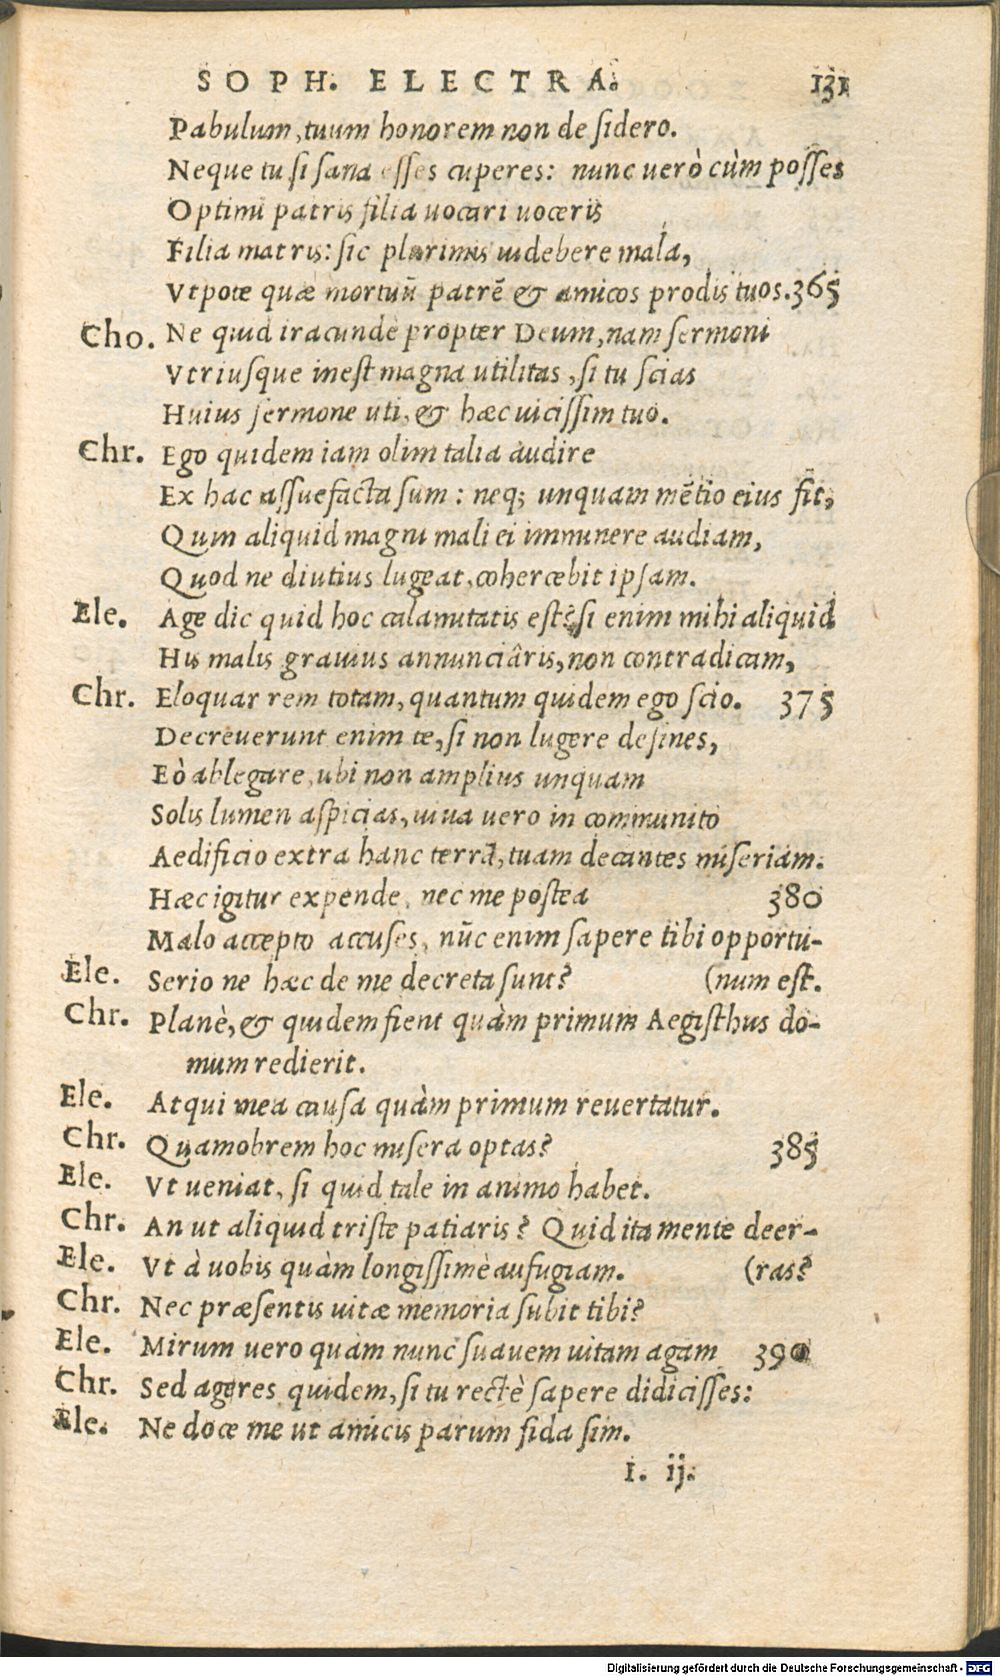 SOPH. ELECTRA. 131
Pabulum, tuum honorem non desidero.
Neque tu si sana esses cuperes: nunc uerò cùm posses
Optimi patris filia uocari uoceris
Filia matris: sic plurimis uidebere mala,
Vtpote quæ mortuũ patrẽ & amicos prodis tuos. 365
Cho. Ne quid iracundè propter Deum, nam sermoni
Vtriusque inest magna utilitas, si tu scias
Huius sermone uti, & hæc uicissim tuo.
Chr. Ego quidem iam olim talia audire
Ex hac assuefacta sum: neq; unquam mẽtio eius fit,
Quin aliquid magni mali ei imminere audiam,
Quod ne diutius lugeat, cohercebit ipsam.
Ele. Age dic quid hoc calamitatis est? si enim mihi aliquid
His malis grauius annunciâris, non contradicam,
Chr. Eloquar rem totam, quantum quidem ego scio. 375
Decreuerunt enim te, si non lugere desines,
Eò ablegare, ubi non amplius unquam
Solis lumen aspicias, uiua uero in communito
Aedificio extra hanc terrã, tuam decantes miseriam.
Hæc igitur expende, nec me postea 380
Malo accepto accuses, nũc enim sapere tibi opportu-
Ele. Serio ne hæc de me decreta sunt? (num est.
Chr. Planè, & quidem fient quàm primum Aegisthus do-
mum redierit.
Ele. Atqui mea causa quàm primum reuertatur.
Chr. Quamobrem hoc misera optas? 385
Ele. Vt ueniat, si quid tale in animo habet.
Chr. An ut aliquid triste patiaris? Quid ita mente deer-
Ele. Vt à uobis quàm longissimè aufugiam. (ras?
Chr. Nec præsentis uitæ memoria subit tibi?
Ele. Mirum uero quàm nunc suauem uitam agam 390
Chr. Sed ageres quidem, si tu rectè sapere didicisses:
Ele. Ne doce me ut amicis parum fida sim.
I. ij.
Digitalisierung gefördert durch die Deutsche Forschungsgemeinschaft - DFG